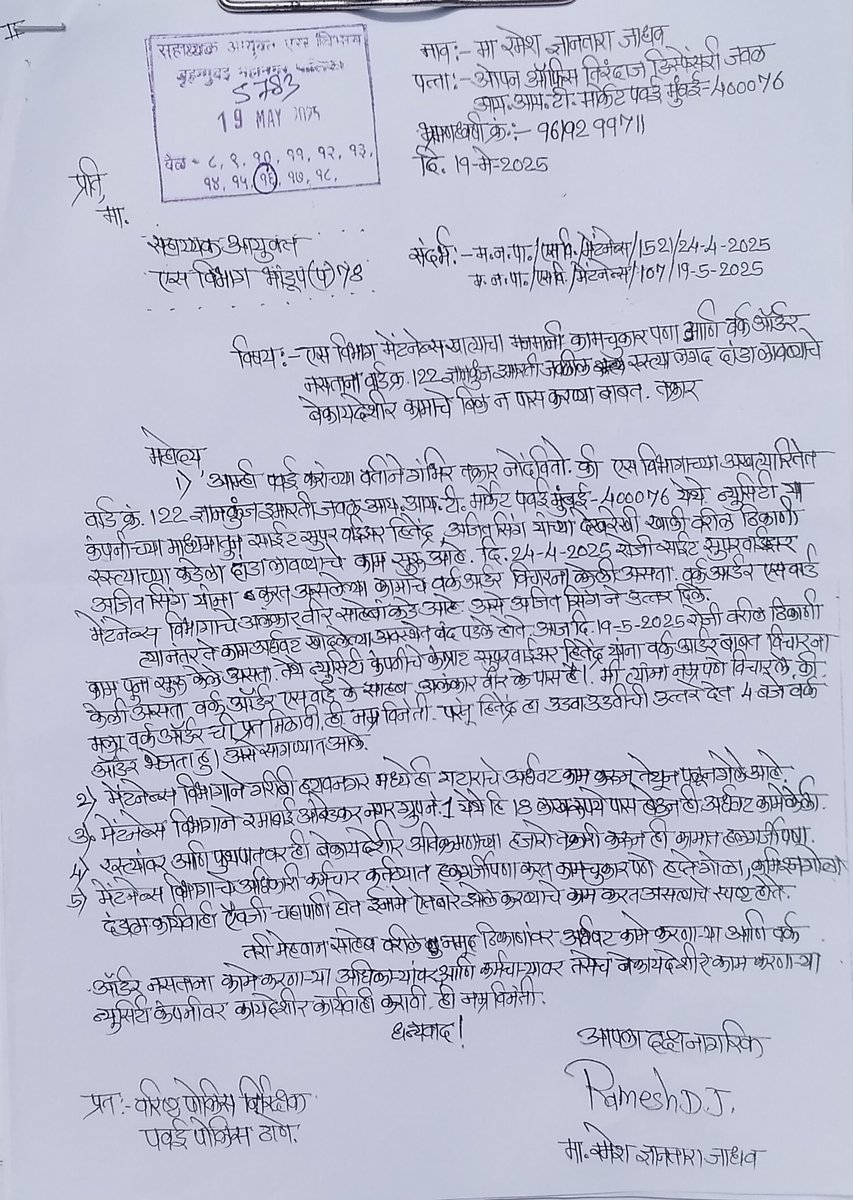 सहाय्यक आयुक्त एस विभाग
बृहन्मुंबई महानगर पालिका
5783
19 MAY 2025
वेळ - ८, ९, १०, ११, १२, १३,
१४, १५, १६, १७, १८,
नाव:- मा रमेश ज्ञानतारा जाधव
पत्ता:- ओपन ऑफिस तिरंदाज डिस्पेंसरी जवळ
आय. आय. टी. मार्केट पवई मुंबई-400076
भ्रमणध्वनी क्रं:- 9619299711
दि. 19-मे-2025
प्रति,
मा.
सहाय्यक आयुक्त
एस विभाग भांडूप (प) 78
संदर्भ:- म.न.पा./एसवि./मेंटनेन्स/1521/24-4-2025
म.न.पा./एसवि./मेंटनेन्स/107/19-5-2025
विषय:- एस विभाग मेंटनेन्स खात्याचा मनमानी कामचुकार पणा आणि वर्क ऑर्डर
नसताना वार्ड क्र. 122 ज्ञानकुंज आरती जवळील रस्त्या लगद दांडा लावण्याचे
बेकायदेशीर कामाचे बिल न पास करण्या बाबत. तक्रार
महोदय
1) आम्ही पवई करांच्या वतीने गंभिर तक्रार नोंदवितो. की एस विभागाच्या अखत्यारितेत
वार्ड क्रं. 122 ज्ञानकुंज आरती जवळ आय. आय. टी. मार्केट पवई मुंबई-400076 येथे न्युसिटी या
कंपनीच्या माध्यमातुन साईट सुपर वाईझर हितेंद्र, अजित सिंग यांच्या देखरेखी खाली वरील ठिकाणी
रस्त्याच्या कडेला दांडा लावण्याचे काम सुरू आहे. दि. 24-4-2025 रोजी साईट सुपरवाईझर
अजित सिंग यांना करत असलेल्या कामाचे वर्क ऑर्डर विचारना केली असता. वर्क ऑर्डर एस वार्ड
मेंटनेन्स विभागाचे अलंकार वीर साहेबांकडे आहे. असे अजित सिंग ने उत्तर दिले.
त्यानंतर ते काम अर्धवट खोदलेल्या अवस्थेत बंद पडले होते. आज दि. 19-5-2025 रोजी वरील ठिकाणी
काम पुन्हा सुरू केले असता. तेथे न्युसिटी कंपनीचे सुपरवाईझर हितेंद्र यांना वर्क ऑर्डर बाबत विचारना
केली असता वर्क ऑर्डर एस वार्ड के साहब अलंकार वीर के पास है। मी त्यांना नम्र पणे विचारले. की
मला वर्क ऑर्डर ची प्रत मिळावी ही नम्र विनंती. परंतु हितेंद्र हा उडवा उडवीची उत्तर देत 4 बजे वर्क
ऑर्डर भेजता हु। असे सांगण्यात आले.
2) मेंटनेन्स विभागाने गरीली मध्ये ही गटाराचे अर्धवट काम करून तेथून पळून गेले आहे.
3) मेंटनेन्स विभागाने रमाबाई आंबेडकर नगर ग्रुप नं. 1 येथे हि 18 लाख रुपये पास होऊन ही अर्धवट कामे केली.
4) रस्त्यांवर आणि फुथपातवर ही बेकायदेशीर अतिक्रमणाच्या हजारो तक्रारी करून ही कामात हलगर्जीपणा.
5) मेंटनेन्स विभागाचे अधिकारी कर्मचारी कर्तव्यात हलगर्जीपणा करत कामचुकार पणे हप्ते गोळा, कमिशन गोळा
कार्यवाही ऐवजी चहापाणी घेत काम करत असल्याचे स्पष्ट होते.
तरी मेहरबान साहेब वरील नमूद ठिकाणांवर अर्धवट कामे करणाऱ्या आणि वर्क
ऑर्डर नसताना कामे करणाऱ्या अधिकाऱ्यांवर आणि कर्मचाऱ्यावर तसेच बेकायदेशीर काम करणाऱ्या
न्युसिटी कंपनीवर कायदेशीर कार्यवाही करावी ही नम्र विनंती.
धन्यवाद!
आपला दक्ष नागरिक
Ramesh D.J.
मा. रमेश ज्ञानतारा जाधव
प्रत:- वरिष्ठ पोलिस निरिक्षक
पवई पोलिस ठाणे.